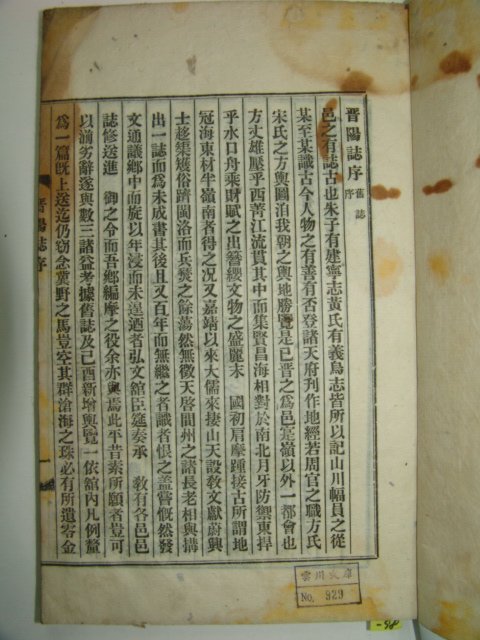 晋陽誌序 舊誌序
邑之有誌古也朱子有建寧志黃氏有義烏志皆所以記山川幅員之從
某至某識古今人物之有善有否登諸天府刋作地經若周官之職方氏
宋氏之方輿圖洎我朝之輿地勝覽是已晋之爲邑寔嶺以外一都會也
方丈雄壓乎西菁江流貫其中而集賢昌海相對於南北月牙防禦東捍
乎水口舟乘財賦之出簪纓文物之盛麗末 國初肩摩踵接古所謂地
冠海東材半嶺南者得之况又嘉靖以來大儒來捿山天設教文獻蔚興
士趍榘矱俗躋閩洛而兵燹之餘蕩然無徵天啓間州之諸長老相與搆
出一誌而爲未成書其後且又百年而無繼之者識者恨之盖嘗慨然發
文通議鄉中而旋以年浸而未遑迺者弘文舘臣筵奏承 敎有各邑邑
誌修送進 御之令而吾鄉編摩之役余亦與焉此平昔素所願者豈可
以湔劣辭遂與數三諸益考據舊誌及己酉新增輿覽一依舘內凡例釐
爲一篇旣上送迄仍窃念冀野之馬豈空其群滄海之珠必有所遺零金
晋陽誌序
雲川文庫
No. 929
-98